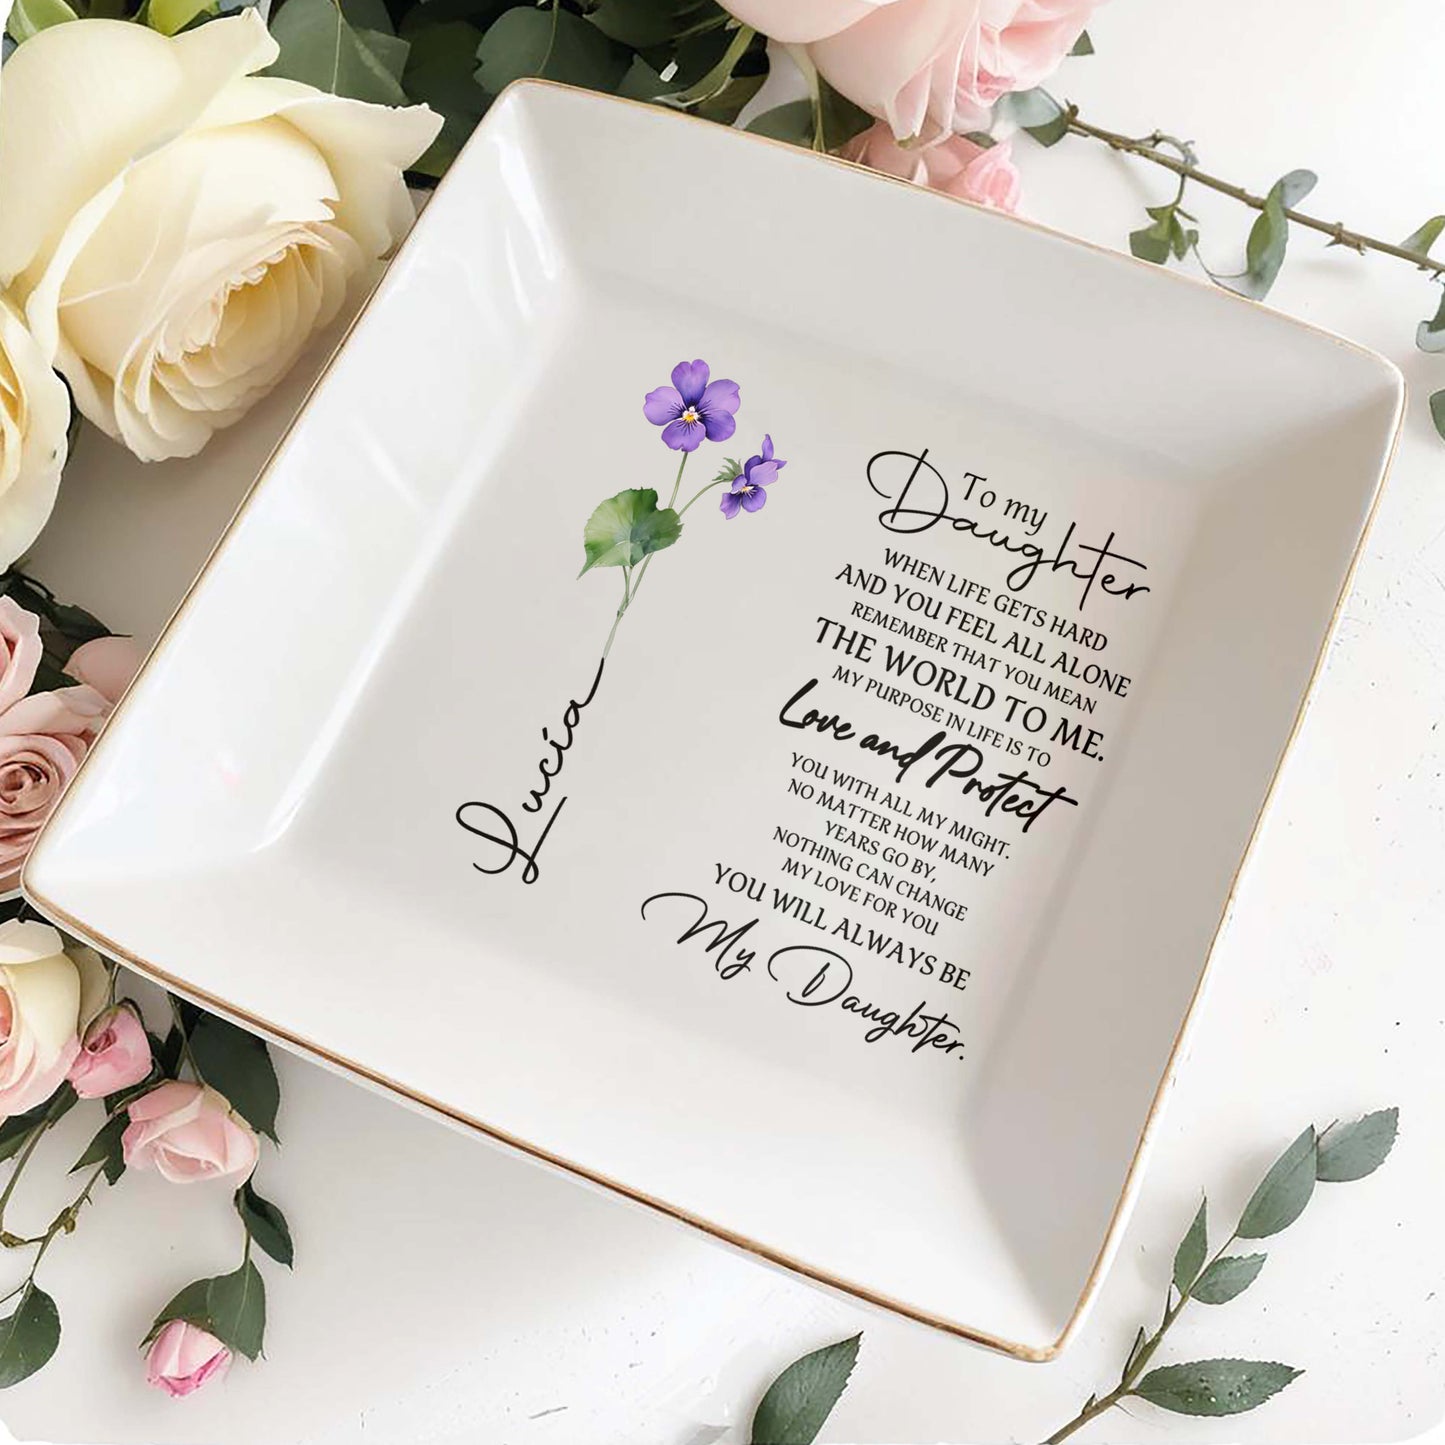 Lucía
To my
Daughter
WHEN LIFE GETS HARD
AND YOU FEEL ALL ALONE
REMEMBER THAT YOU MEAN
THE WORLD TO ME.
MY PURPOSE IN LIFE IS TO
Love and Protect
YOU WITH ALL MY MIGHT.
NO MATTER HOW MANY
YEARS GO BY,
NOTHING CAN CHANGE
MY LOVE FOR YOU
YOU WILL ALWAYS BE
My Daughter.